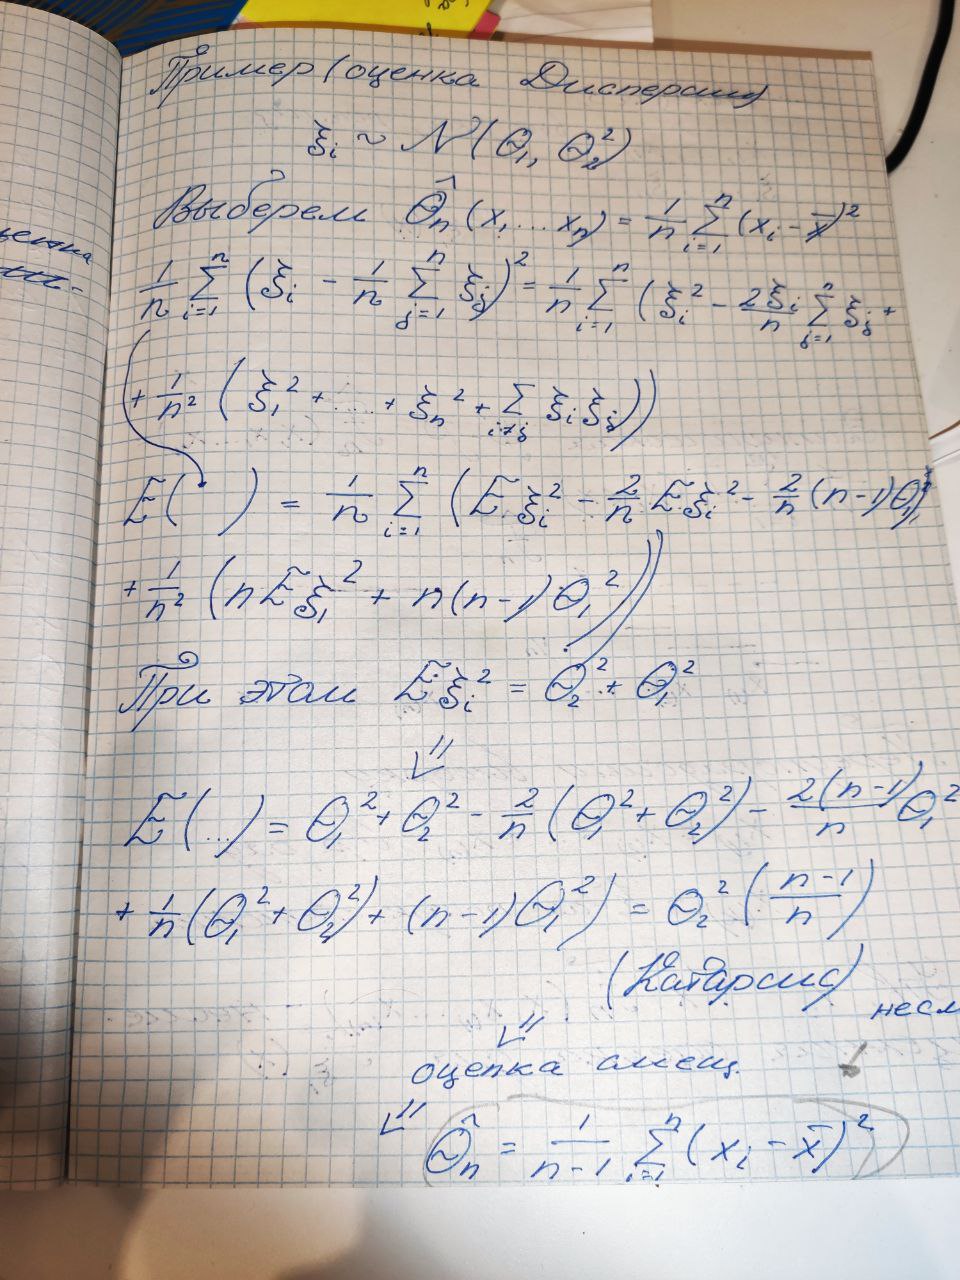 Пример (оценка Дисперсии)
ξᵢ ~ N(θ₁, θ₂²)
Выберем θ̂ₙ(x₁...xₙ) = 1/n Σᵢ₌₁ⁿ (xᵢ - x̄)²
1/n Σᵢ₌₁ⁿ (ξᵢ - 1/n Σⱼ₌₁ⁿ ξⱼ)² = 1/n Σᵢ₌₁ⁿ (ξᵢ² - 2ξᵢ/n Σⱼ₌₁ⁿ ξⱼ +
+ 1/n² (ξ₁² + ... + ξₙ² + Σᵢ≠ⱼ ξᵢξⱼ))
E( ) = 1/n Σᵢ₌₁ⁿ (Eξᵢ² - 2/n Eξᵢ² - 2/n (n-1)θ₁²
+ 1/n² (nEξ₁² + n(n-1)θ₁²))
При этом Eξᵢ² = θ₂² + θ₁²
⇓
E(...) = θ₁² + θ₂² - 2/n (θ₁² + θ₂²) - 2(n-1)/n θ₁²
+ 1/n (θ₁² + θ₂²) + (n-1)θ₁²) = θ₂² (n-1/n)
(Катарсис)
несм
⇓
оценка смещ.
⇓
θ̂ₙ = 1/n-1 Σᵢ₌₁ⁿ (xᵢ - x̄)²